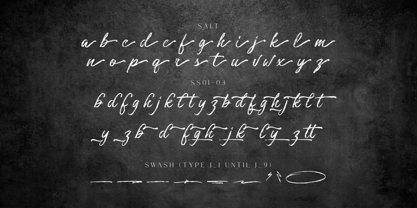 SALT
a b c d e f g h i j k l m
n o p q r s t u v w x y z
SS01-04
b d f g h j k l t y z b d f g h j k l t
y z b d f g h j k l y z tt
SWASH (TYPE J_1 UNTIL J_9)